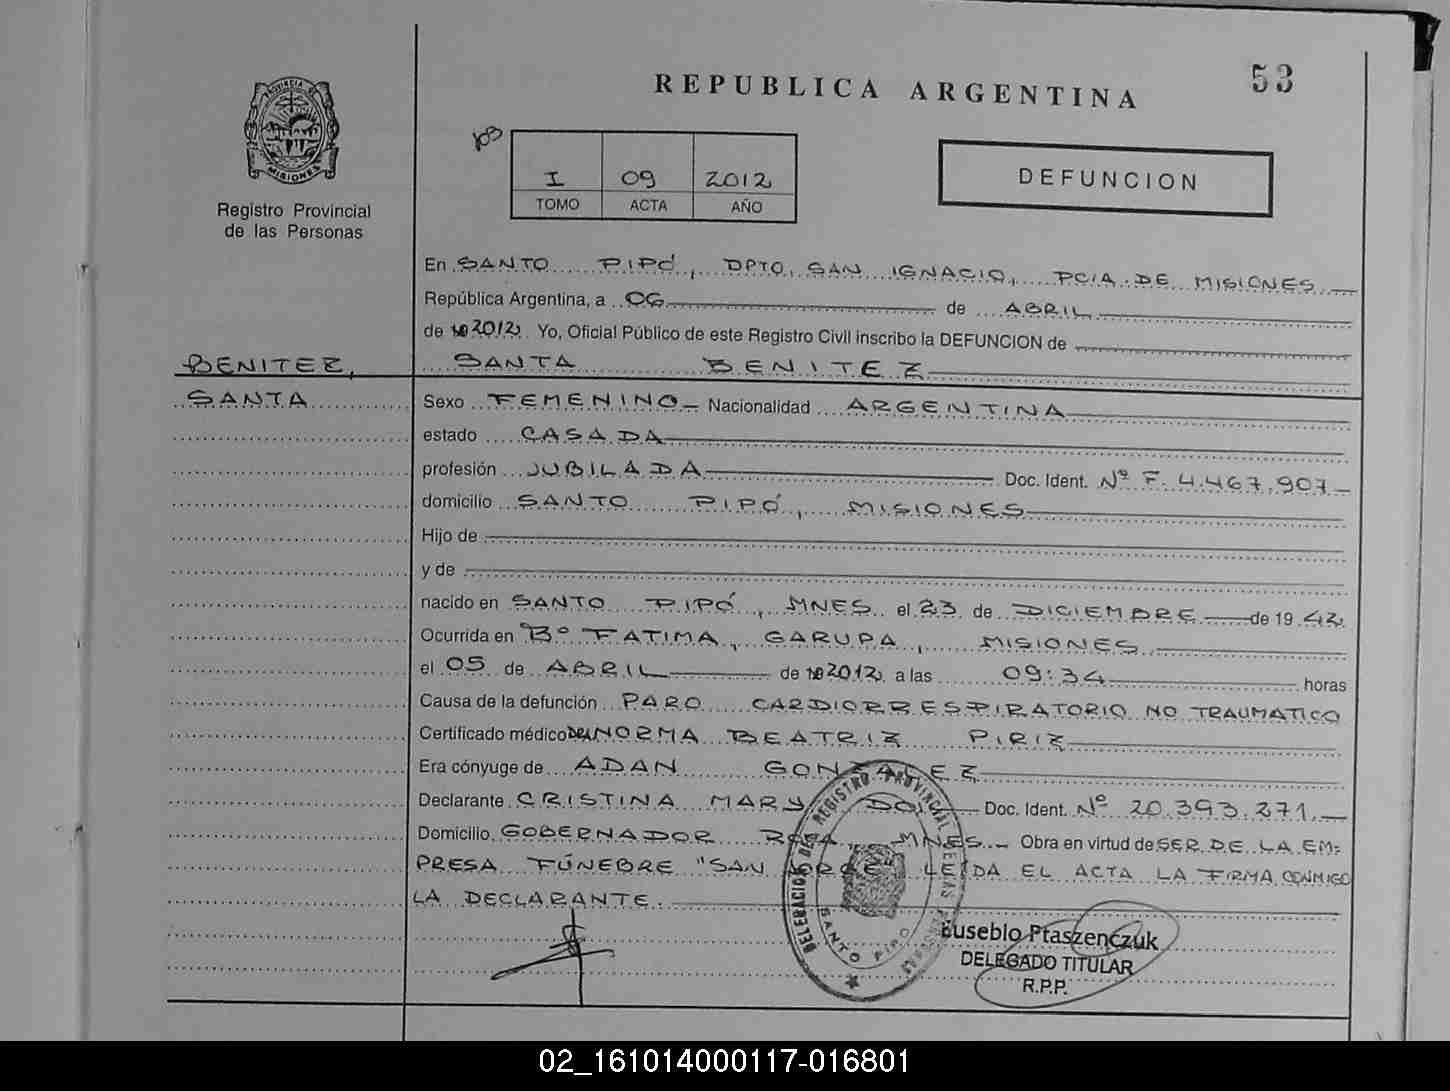 53
REPUBLICA ARGENTINA
PROVINCIA DE
MISIONES
Registro Provincial
de las Personas
103
I 09 2012
TOMO ACTA AÑO
DEFUNCION
En SANTO PIPÓ, DPTO. SAN IGNACIO, PCIA. DE MISIONES
República Argentina, a 06 de ABRIL
de 2012 Yo, Oficial Público de este Registro Civil inscribo la DEFUNCION de
BENITEZ, SANTA BENITEZ
SANTA Sexo FEMENINO Nacionalidad ARGENTINA
estado CASADA
profesión JUBILADA Doc. Ident. Nº F. 4.467.907
domicilio SANTO PIPÓ, MISIONES
Hijo de
y de
nacido en SANTO PIPÓ, MNES. el 23 de DICIEMBRE de 19 42
Ocurrida en Bº FATIMA, GARUPA, MISIONES
el 05 de ABRIL de 2012 a las 09:34 horas
Causa de la defunción PARO CARDIORRESPIRATORIO NO TRAUMATICO
Certificado médico DRA NORMA BEATRIZ PIRIZ
Era cónyuge de ADAN GONZALEZ
Declarante CRISTINA MARY Doc. Ident. Nº 20.393.271
Domicilio GOBERNADOR ROCA, MNES. Obra en virtud de SER DE LA EM-
PRESA FÚNEBRE "SAN JORGE" LEIDA EL ACTA LA FIRMA CONMIGO
LA DECLARANTE.
DELEGACION DEL REGISTRO PROVINCIAL DE LAS PERSONAS
SANTO PIPO
Eusebio Ptaszenczuk
DELEGADO TITULAR
R.P.P.
02_161014000117-016801